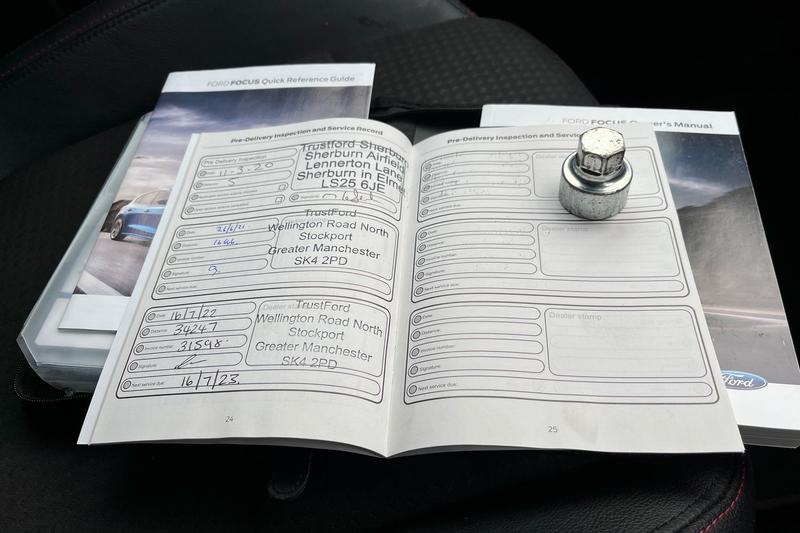 FORD FOCUS Quick Reference Guide
FORD FOCUS Owner's Manual
Pre-Delivery Inspection and Service Record
Pre-Delivery Inspection
Date: 11-3-20
5
Trustford Sherburn
Sherburn Airfield
Lennerton Lane
Sherburn in Elmet
LS25 6JE
Signature:
Date: 26/6/21
Distance:
Invoice number:
Signature:
Next service due:
TrustFord
Wellington Road North
Stockport
Greater Manchester
SK4 2PD
Date: 16/7/22
Distance: 34247
Invoice number: 31598
Signature:
Next service due: 16/7/23.
Dealer stamp
TrustFord
Wellington Road North
Stockport
Greater Manchester
SK4 2PD
24
Pre-Delivery Inspection and Service
Dealer
Next service due:
Date:
Distance:
Invoice number:
Signature:
Next service due:
Dealer stamp
Date:
Distance:
Invoice number:
Signature:
Next service due:
Dealer stamp
25
Ford